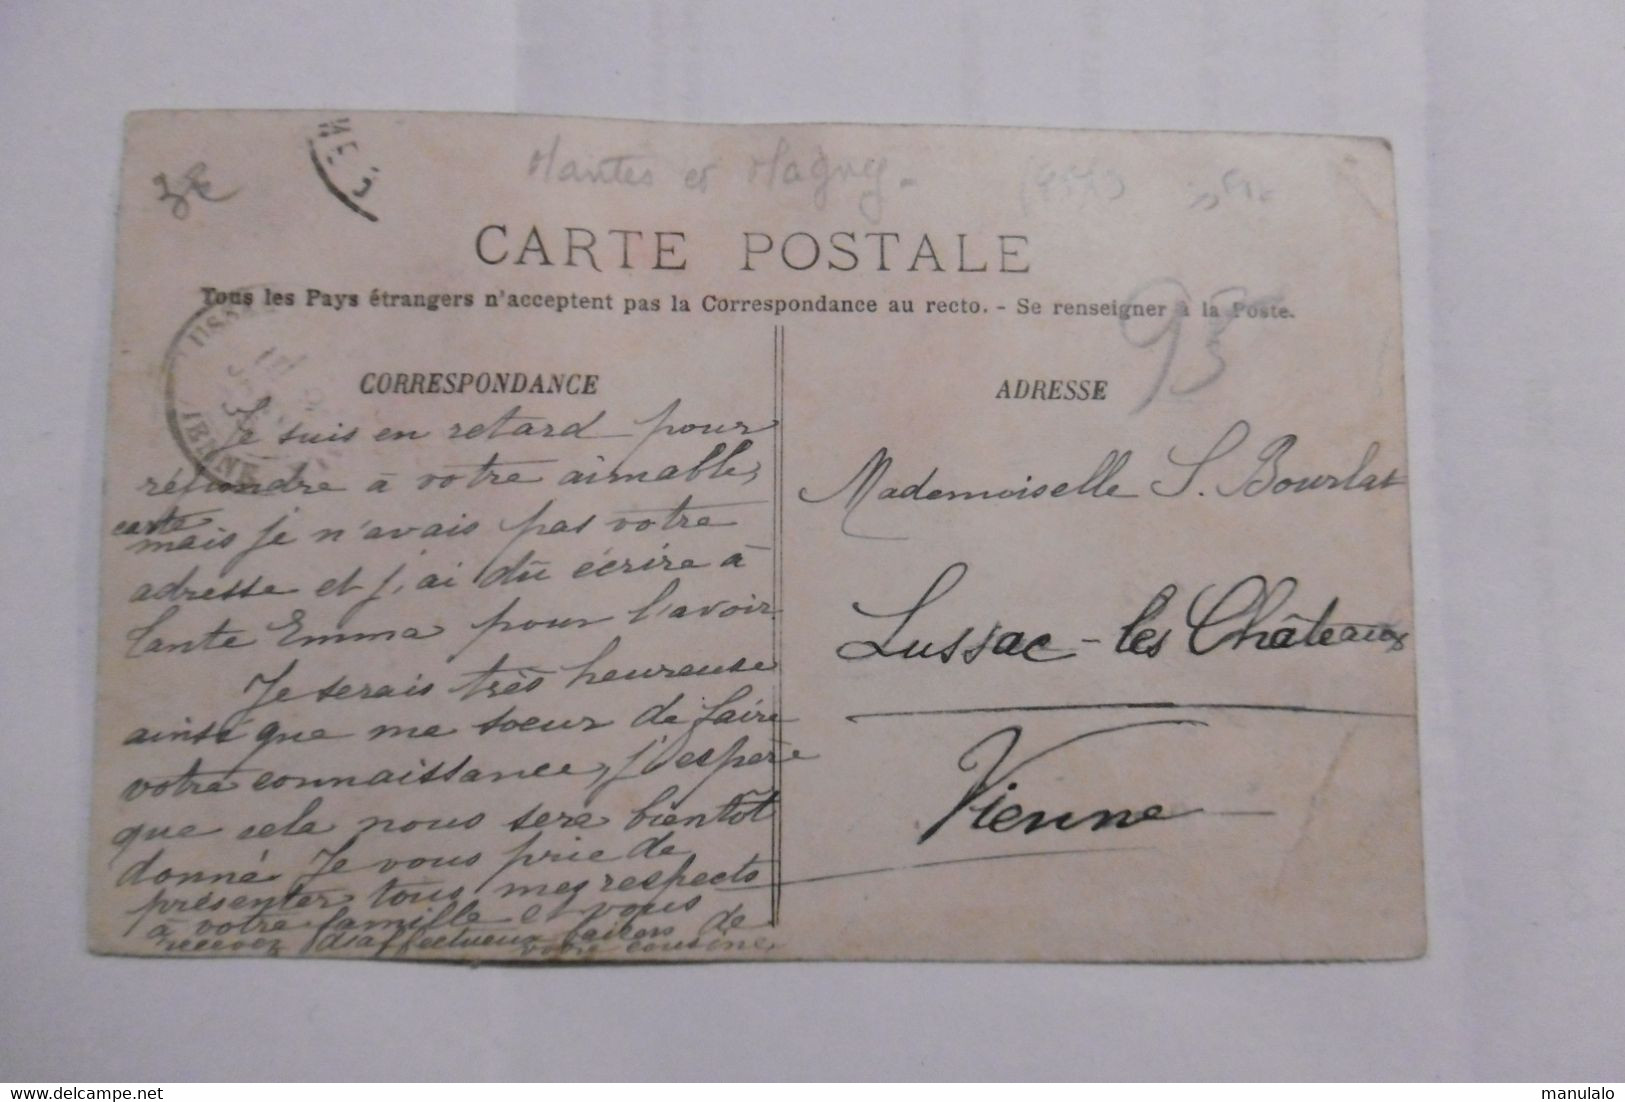 Mantes et Magny.
3€
CARTE POSTALE
Tous les Pays étrangers n'acceptent pas la Correspondance au recto. - Se renseigner à la Poste.
95
CORRESPONDANCE
Je suis en retard pour
répondre à votre aimable
carte
mais je n'avais pas votre
adresse et j'ai dû écrire à
tante Emma pour l'avoir.
Je serais très heureuse
ainsi que me soeur de faire
votre connaissance, j'espère
que cela nous sera bientôt
donné. Je vous prie de
présenter tous mes respects
à votre famille et vous
recevez d'affectueux baisers de
votre cousine
ADRESSE
Mademoiselle S. Bourlat
Lussac-les Châteaux
Vienne
delcampe.net
manulalo